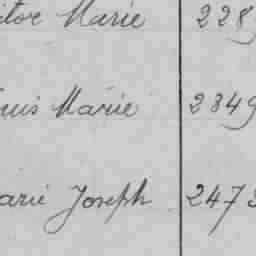 itor Marie 228
ouis Marie 2849
arie Joseph 2473